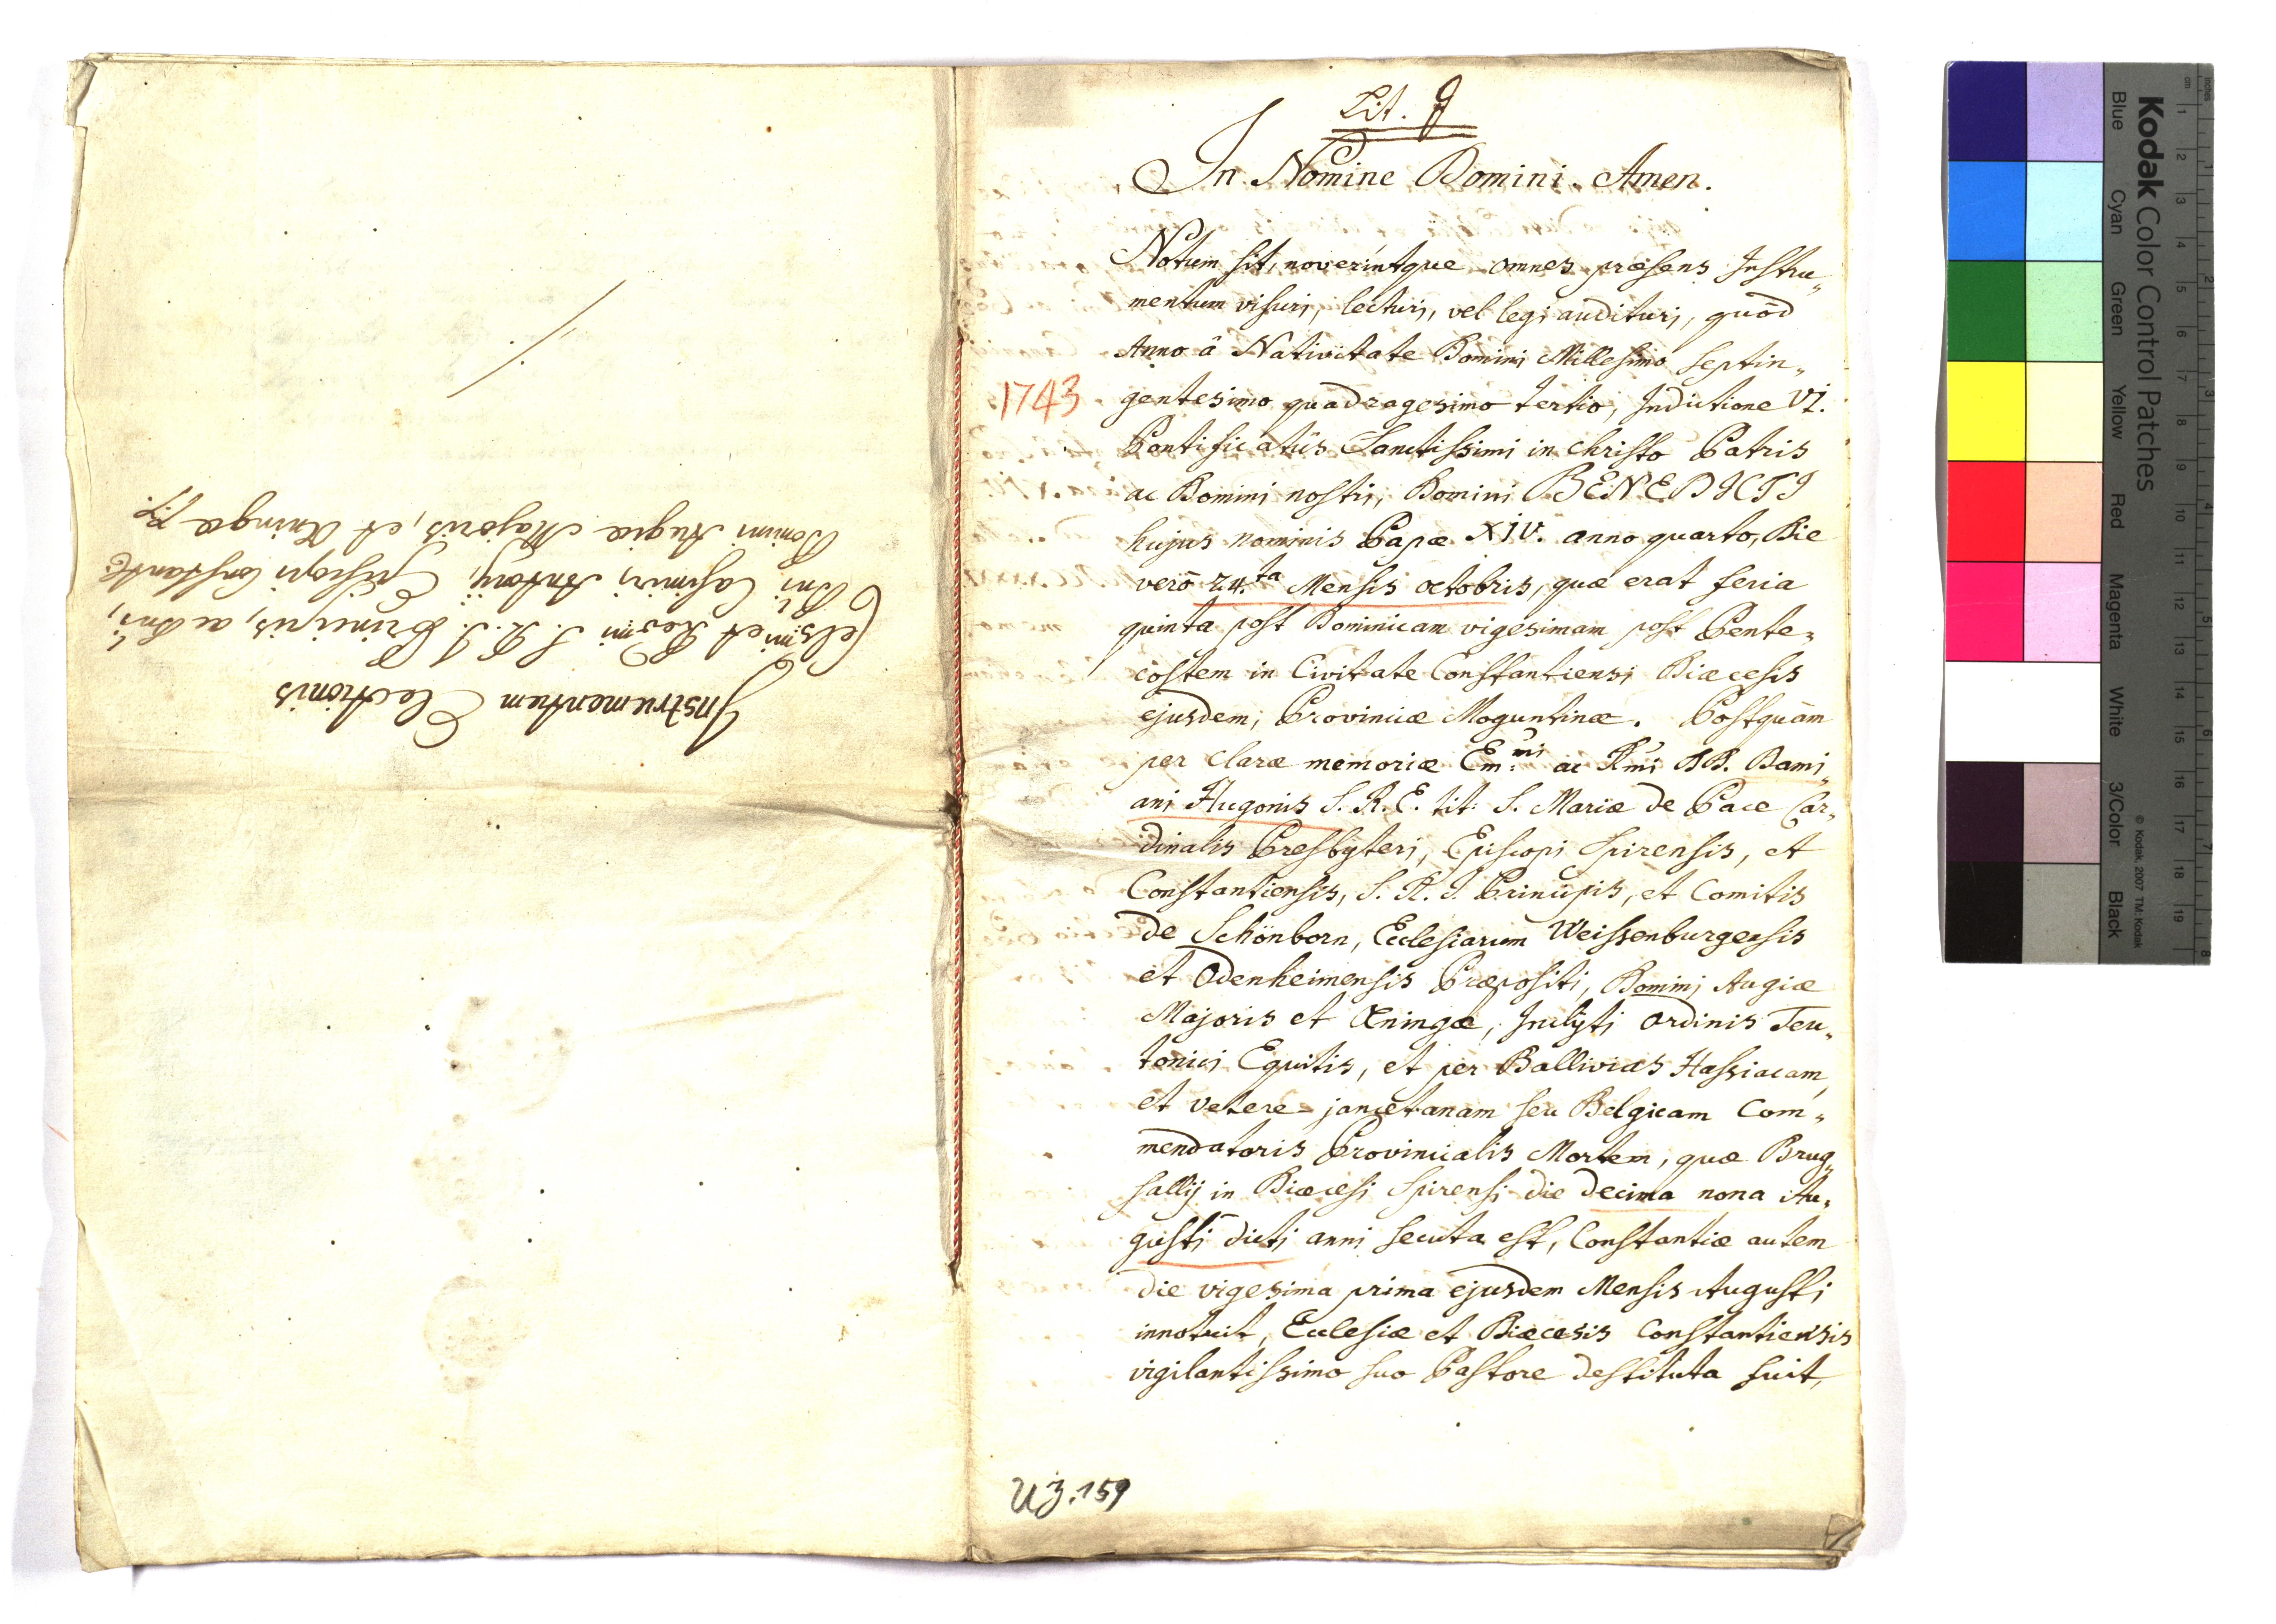 Instrumentum Electionis
Celsmi et Revmi S. R. I. Principis, ac Dni,
Dni Casimiri Antonij Episcopi Constantis
Domini Augiæ Majoris, et Æningæ
Lit. 9
In Nomine Domini. Amen.
Notum sit, noverintque omnes præsens Instru„
mentum visuri, lecturi, vel legi audituri, quòd
Anno â Nativitate Domini Millesimo septin„
1743 gentesimo quadragesimo tertio, Indictione VI.
Pontificatûs Sanctissimi in Christo Patris
ac Domini nostri, Domini BENEDICTI
hujus nominis Papæ XIV. anno quarto, Die
verò 24.ta Mensis octobris, quæ erat feria
quinta post Dominicam vigesimam post Pente„
costem in Civitate Constantiensi Diæcesis
ejusdem, Provinciæ Moguntinæ. Postquàm
per claræ memoriæ Em:mi ac Rmi DD. Dami„
ani Hugonis S. R. E. tit: S. Mariæ de Pace Car„
dinalis Presbyteri, Episcopi Spirensis, et
Constantiensis, S. R. I. Principis, et Comitis
de Schönborn, Ecclesiarum Weissenburgensis
et Odenheimensis Præpositi, Domini Augiæ
Majoris et Æningæ, Inclyti ordinis Teu„
tonici Equitis, et per Ballivias Hassiacam,
et vetere=jancetanam seu Belgicam Com„
mendatoris Provincialis Mortem, quæ Brug„
sallij in Diæcesi Spirensi die decima nona Au„
gusti dicti anni secuta est, Constantiæ autem
die vigesima prima ejusdem Mensis Augusti
innotuit, Ecclesia et Diæcesis Constantiensis
vigilantissimo suo Pastore destituta fuit,
UZ. 159
Kodak Color Control Patches
Blue Cyan Green Yellow Red Magenta White 3/Color Black
© Kodak, 2007 TM: Kodak
inches 1 2 3 4 5 6 7 8
cm 1 2 3 4 5 6 7 8 9 10 11 12 13 14 15 16 17 18 19